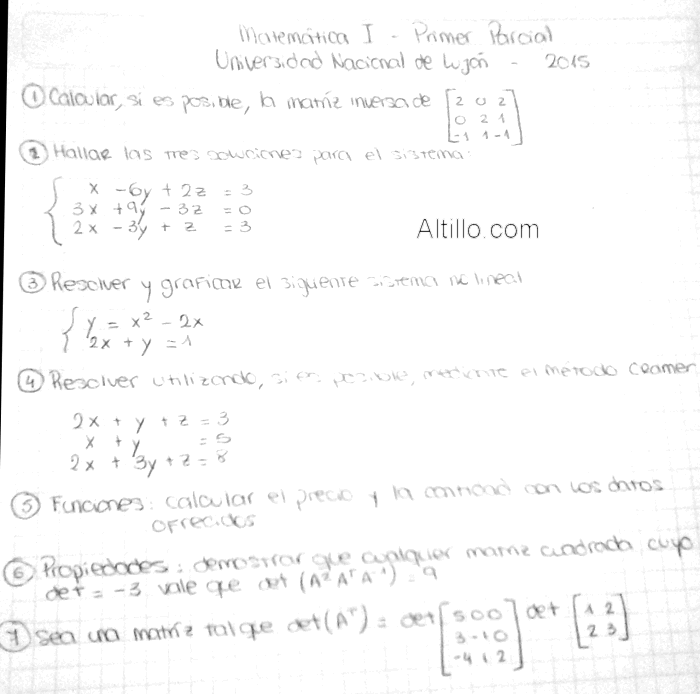 Matemática I - Primer Parcial
Universidad Nacional de Luján - 2015
① Calcular, si es posible, la matríz inversa de [2 0 2
0 2 1
-1 1 -1]
② Hallar las tres soluciones para el sistema:
x - 6y + 2z = 3
3x + 9y - 3z = 0
2x - 3y + z = 3
Altillo.com
③ Resolver y graficar el siguente sistema no lineal
y = x² - 2x
2x + y = 1
④ Resolver utilizando, si es posible, mediante el método Cramer
2x + y + z = 3
x + y = 5
2x + 3y + z = 8
⑤ Funciones: calcular el precio y la cantidad con los datos
ofrecidos
⑥ Propiedades: demostrar que cualquier matriz cuadrada cuyo
det = -3 vale que det (A² Aᵀ A⁻¹) = 9
⑦ Sea una matríz tal que det(Aᵀ) = det [5 0 0
3 -1 0
-4 1 2] det [1 2
2 3]